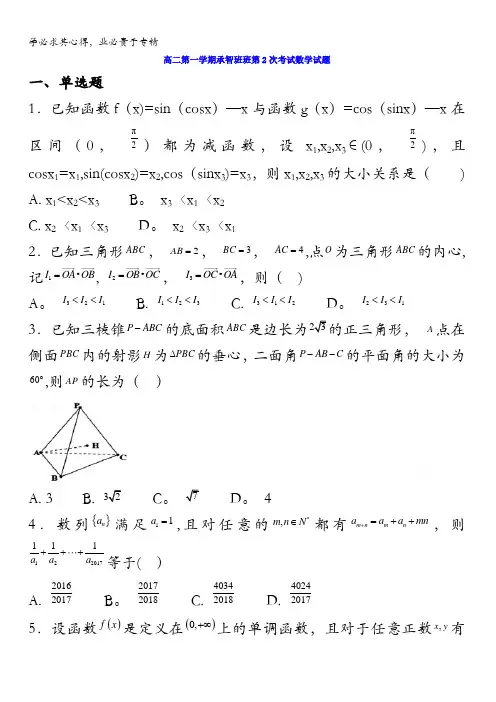 学必求其心得，业必贵于专精
高二第一学期承智班班第2次考试数学试题
一、单选题
1．已知函数f（x)=sin（cosx）—x与函数g（x）=cos（sinx）—x在
区间（0，π/2）都为减函数，设x₁,x₂,x₃∈(0，π/2)，且
cosx₁=x₁,sin(cosx₂)=x₂,cos（sinx₃)=x₃，则x₁,x₂,x₃的大小关系是（ )
A. x₁<x₂<x₃ B。 x₃〈x₁〈x₂
C. x₂〈x₁〈x₃ D。 x₂〈x₃〈x₁
2．已知三角形ABC，AB=2，BC=3，AC=4,点O为三角形ABC的内心，
记I₁=OA·OB，I₂=OB·OC，I₃=OC·OA，则（ )
A。 I₃<I₂<I₁ B. I₁<I₂<I₃ C. I₃<I₁<I₂ D。 I₂<I₃<I₁
3．已知三棱锥P−ABC的底面积ABC是边长为2√3的正三角形，A点在
侧面PBC内的射影H为ΔPBC的垂心，二面角P−AB−C的平面角的大小为
60°,则AP的长为（ ）
P
A
H
C
B
A. 3 B. 3√2 C。 √7 D。 4
4．数列{aₙ}满足a₁=1,且对任意的m,n∈N*都有aₘ₊ₙ=aₘ+aₙ+mn，则
1/a₁+1/a₂+⋯+1/a₂₀₁₇等于( ）
A. 2016/2017 B。 2017/2018 C. 4034/2018 D. 4024/2017
5．设函数f(x)是定义在(0,+∞)上的单调函数，且对于任意正数x,y有